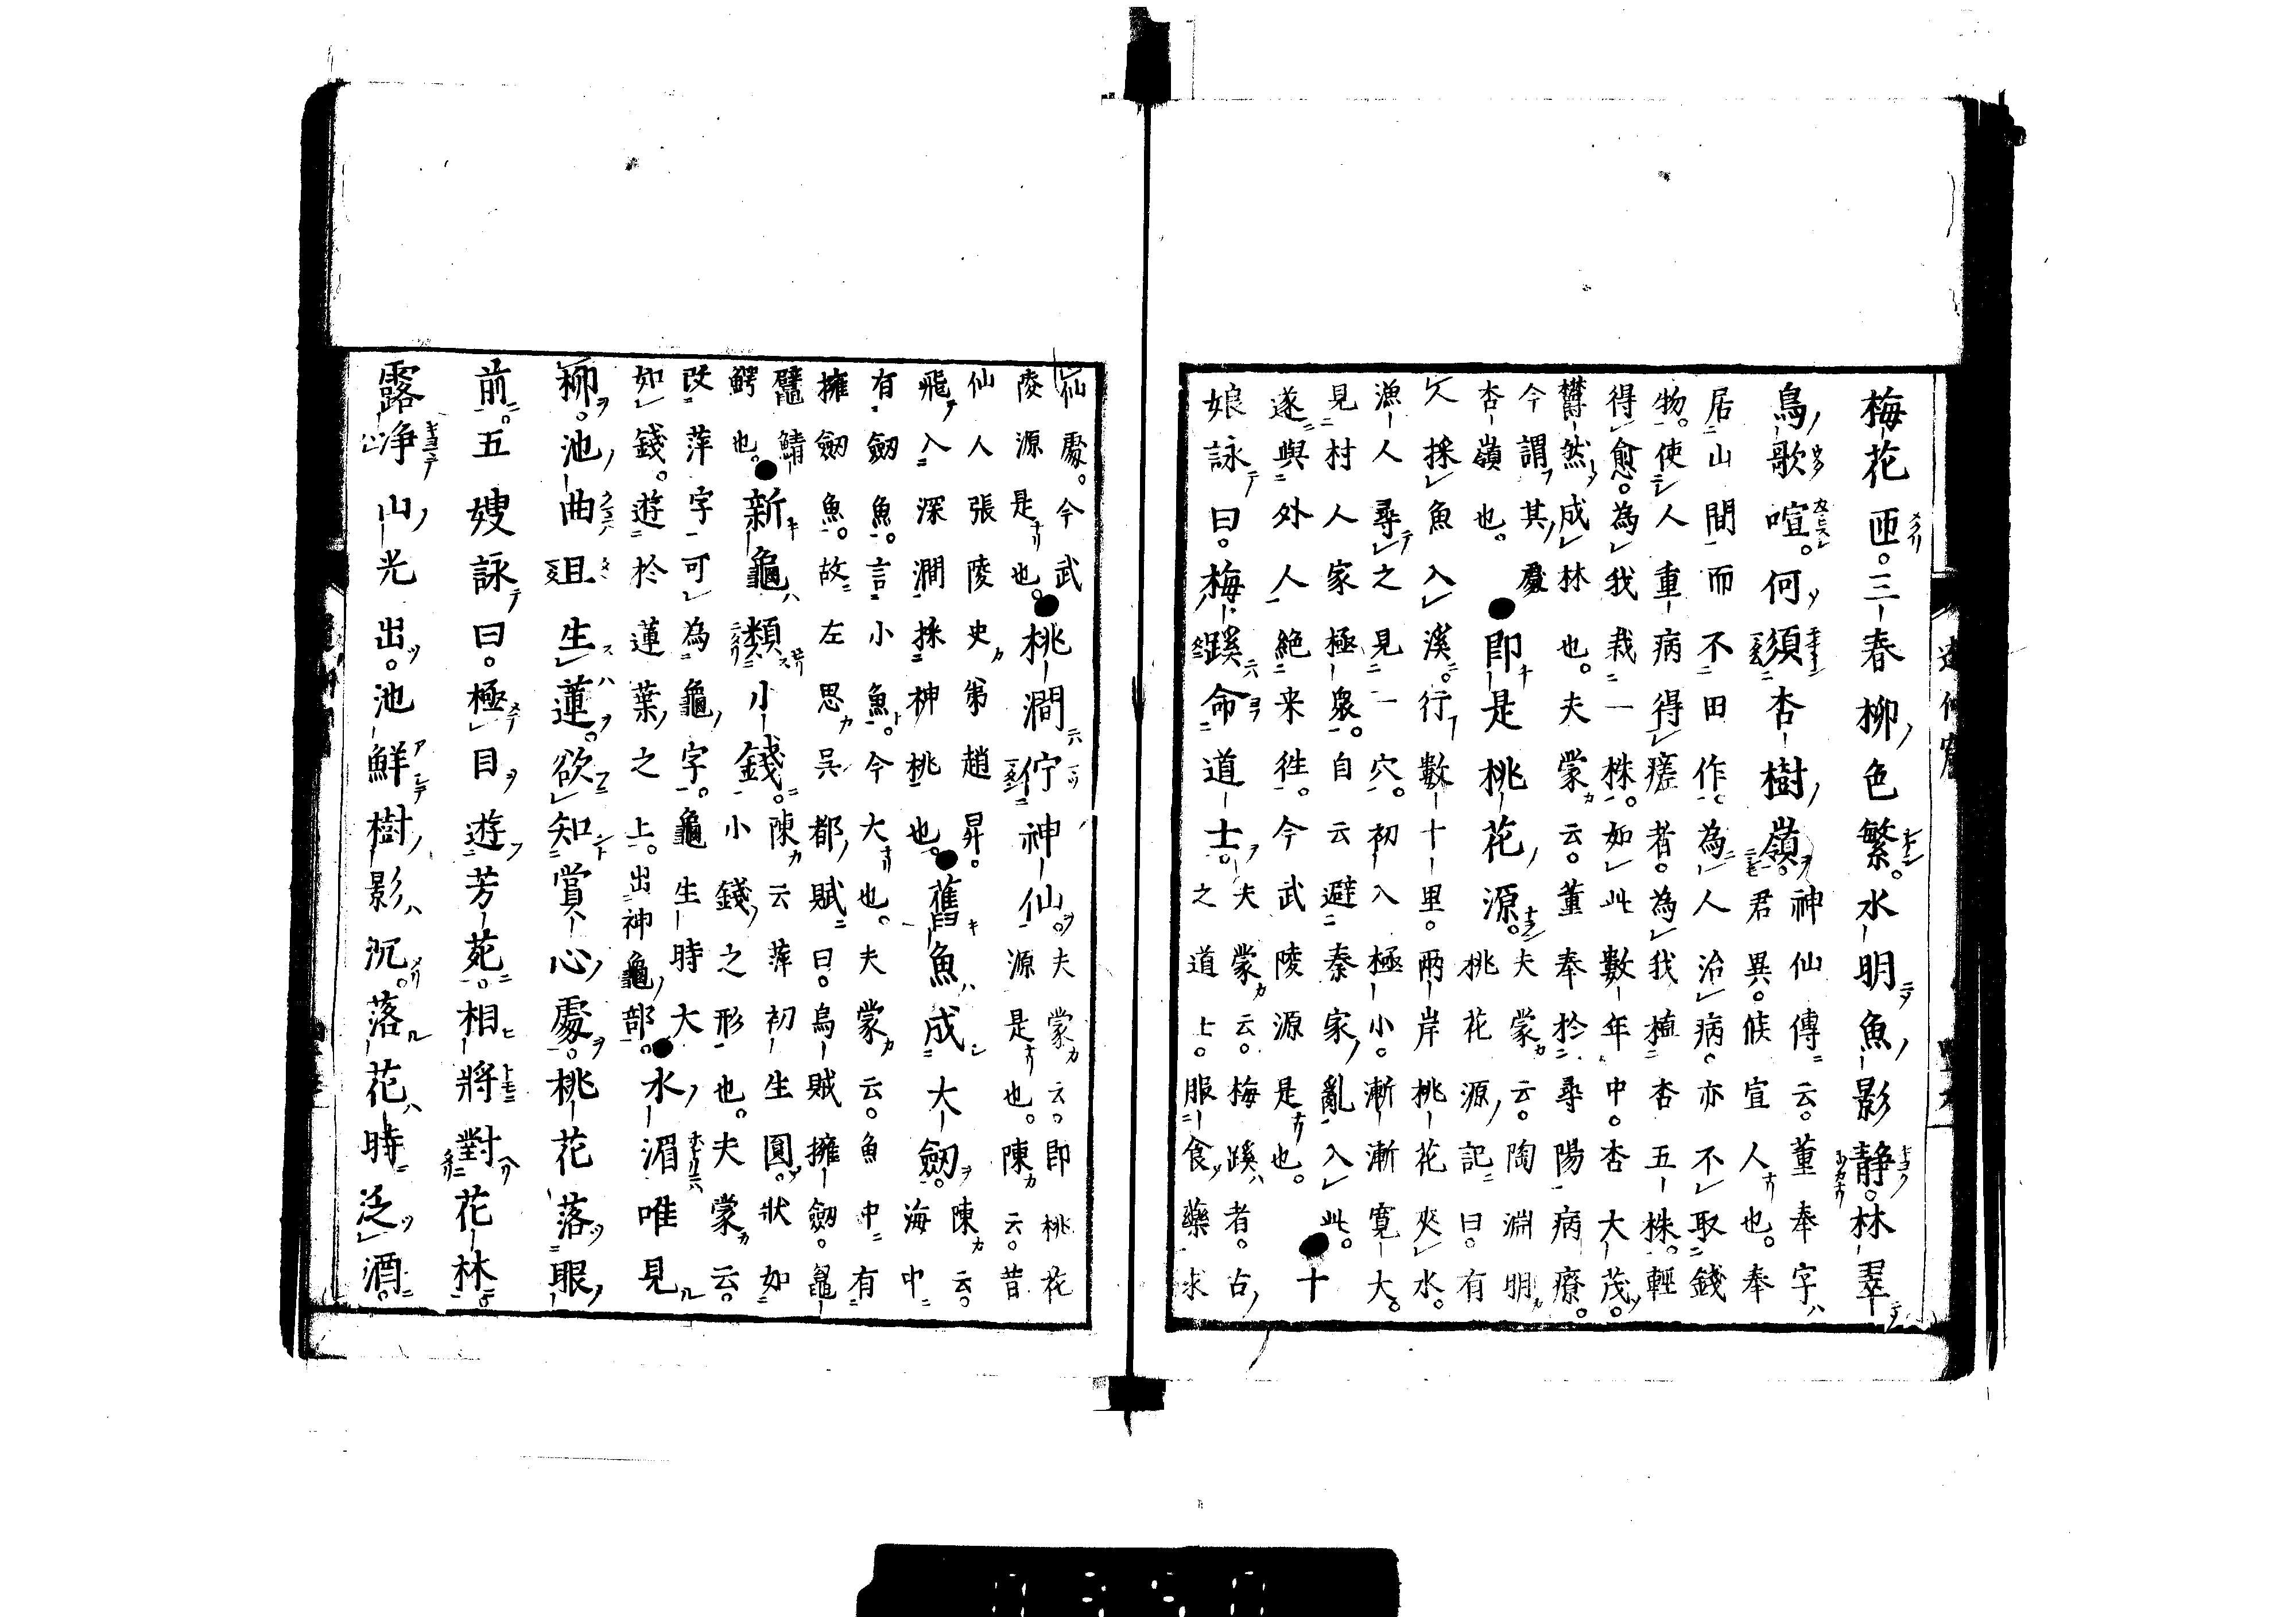 梅花匝。三春柳色繁。水明魚影靜。林翠
鳥歌喧。何須杏樹嶺。神仙傳云。董奉字
君異。候宣人也。奉
居山間而不田作。為人治病。亦不取錢
物。使人重病得瘥者。為我植杏五株。輕
得愈。為我栽一株。如此數年中。杏大茂。
欝然成林也。夫蒙云。董奉於尋陽病療。
今謂其處
杏嶺也。
即是桃花源。夫蒙云。陶淵明
桃花源記曰。有
人採魚入溪。行數十里。兩岸桃花夾水。
漁人尋之見一穴。初入極小。漸漸寬大。
見村人家極衆。自云避秦家亂入此。
遂與外人絕来往。今武陵源是也。
十
娘詠曰。梅蹊命道士。夫蒙云。梅蹊者。古
之道士。服食藥求
仙處。今武
陵源是也。
桃澗佇神仙。夫蒙云。即桃花
源是也。陳云。昔
仙人張陵史弟趙昇。
飛入深澗採神桃也。
舊魚成大劒。陳云。
海中
有劒魚。言小魚。今大也。夫蒙云。魚中有
擁劒魚。故左思吳都賦曰。烏賊擁劒。鼊
鼊鯖
鰐也。
新龜類小錢。陳云萍初生圓。狀如
小錢之形也。夫蒙云。
改萍字可為龜字。龜生時大
如錢。遊於蓮葉之上。出神龜部。
水湄唯見
柳。池曲且生蓮。欲知賞心處。桃花落眼
前。五嫂詠曰。極目遊芳苑。相將對花林。
露净山光出。池鮮樹影沉。落花時泛酒。